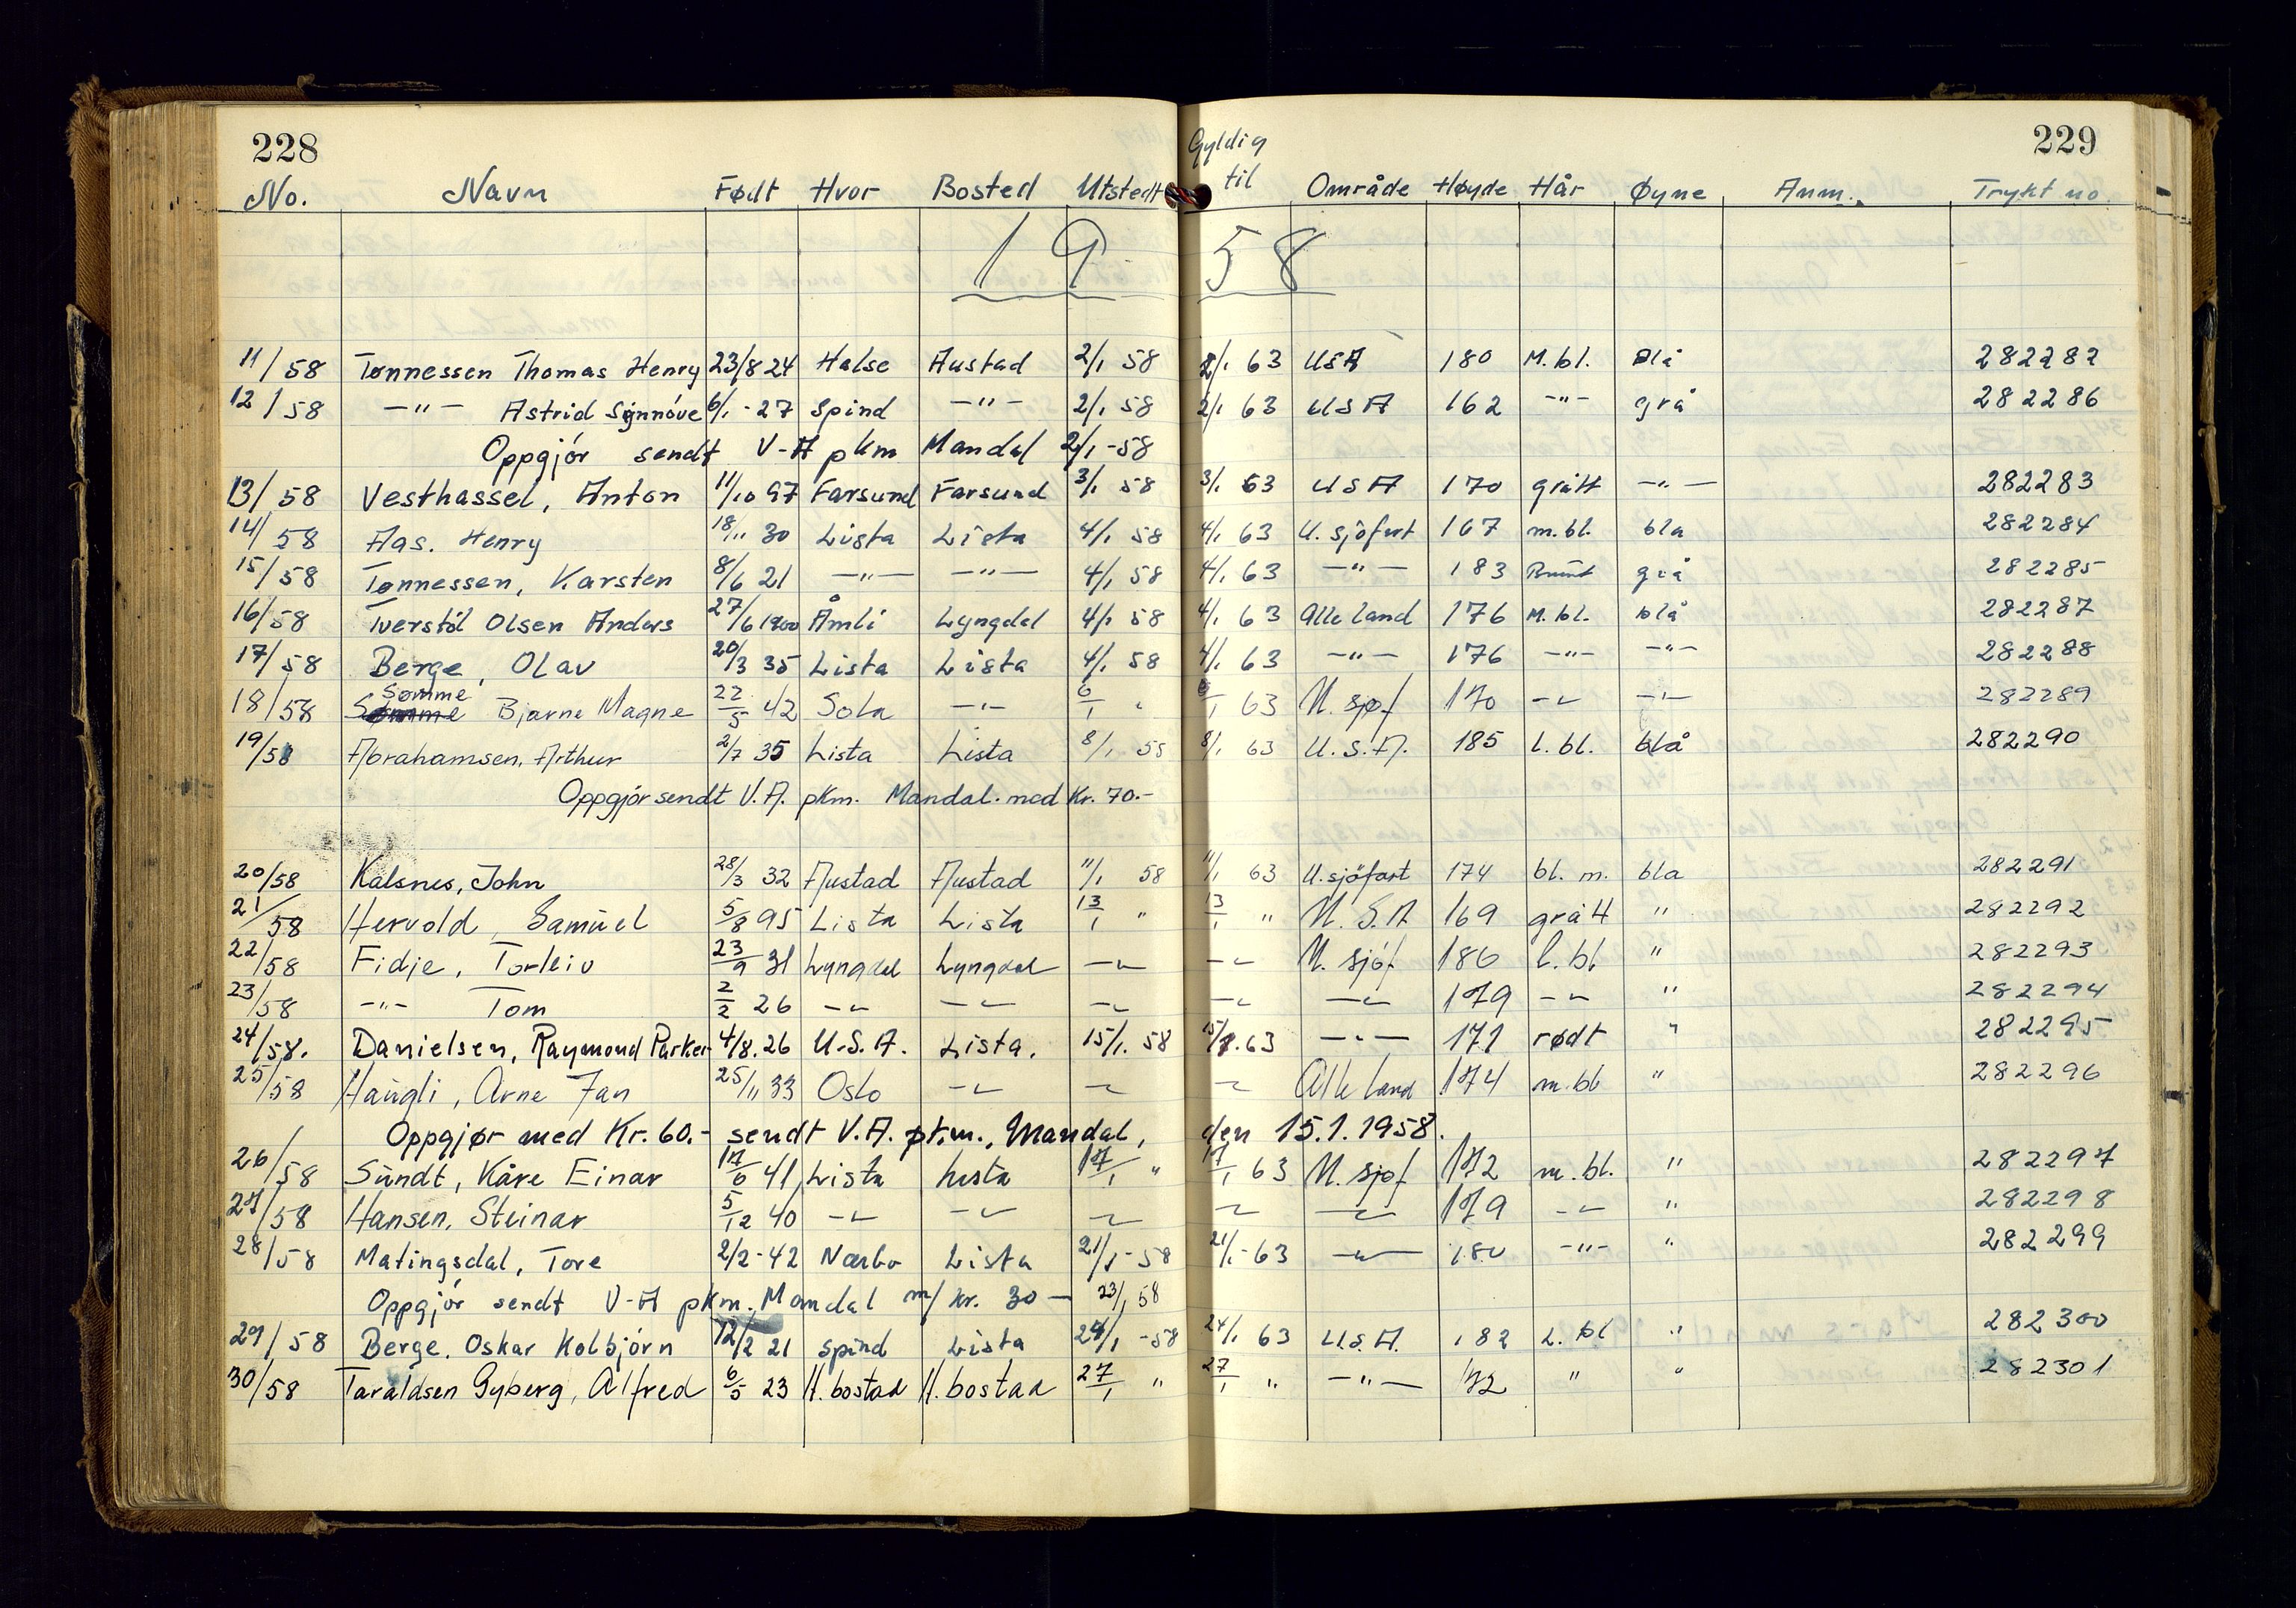 228
229
No. Navn Født Hvor Bosted Utstedt Gyldig til Område Høyde Hår Øyne Anm. Trykt no.
19 58
11/58 Tønnessen Thomas Henry 23/8 24 Halse Austad 2/1 58 2/1 63 USA 180 M.bl. Blå 282282
12/58 —"— Astrid Synnóve 6/1-27 Spind —"— 2/1 58 2/1 63 USA 162 -"- grå 282286
Oppgjór sendt V-A pkm Mandal 2/1-58
13/58 Vesthassel, Anton 11/10 97 Farsund Farsund 3/1 58 3/1 63 USA 170 grått —"— 282283
14/58 Aas. Henry 18/11 30 Lista Lista 4/1 58 4/1 63 U. sjöfart 167 m.bl. bla 282284
15/58 Tønnessen, Karsten 8/6 21 —"— —"— 4/1 58 4/1 63 —"— 183 Brunt grå 282285
16/58 Tverstöl Olsen Anders 27/6 1900 Åmli Lyngdal 4/1 58 4/1 63 Alle land 176 M.bl. blå 282287
17/58 Berge, Olav 20/3 35 Lista Lista 4/1 58 4/1 63 —"— 176 -"- -"- 282288
18/58 Sømme Bjarne Magne 22/5 42 Sola —"— 6/1 " 6/1 63 U. sjøf 170 -"- -"- 282289
19/58 Abrahamsen, Arthur 2/7 35 Lista Lista 8/1 58 8/1 63 U.S.A. 185 l.bl. blå 282290
Oppgjór sendt V.A. pkm. Mandal. med Kr. 70.-
20/58 Kalsnes, John 28/3 32 Austad Austad 11/1 58 11/1 63 U.sjöfart 174 bl. m. bla 282291
21/58 Hervold, Samuel 5/8 95 Lista Lista 13/1 " 13/1 " U.S.A 169 grått " 282292
22/58 Fidje, Torleiv 23/9 31 Lyngdal Lyngdal -"- -"- U. sjöf. 186 l.bl " 282293
23/58 -"- Tom 2/2 26 -"- -"- -"- -"- -"- 179 -"- " 282294
24/58. Danielsen, Raymond Parker 4/8.26 U.S.A. Lista. 15/1. 58 15/1.63 -"- 171 rødt " 282295
25/58 Haugli, Arne Jan 25/11 33 Oslo -"- -"- -"- Alle land 174 m.bl " 282296
Oppgjør med Kr. 60.- sendt V.A. pkm., Mandal, den 15.1.1958.
26/58 Sundt, Kåre Einar 17/6 41 Lista Lista 17/1 " 17/1 63 U. sjøf 172 m.bl. " 282297
27/58 Hansen, Steinar 5/12 40 -"- -"- -"- -"- -"- 179 -"- " 282298
28/58 Matingsdal, Tore 2/2-42 Nærbø Lista 21/1-58 21/1-63 -"- 180 -"- " 282299
Oppgjór sendt V-A pkm. Mandal m/ kr. 30 — 23/1 58
29/58 Berge, Oskar Kolbjórn 12/2 21 Spind Lista 24/1-58 24/1 63 U.S.A. 182 L. bl " 282300
30/58 Taraldsen Gyberg, Alfred 6/5 23 H.bostad H.bostad 27/1 " 27/1 " —"— 172 " " 282301